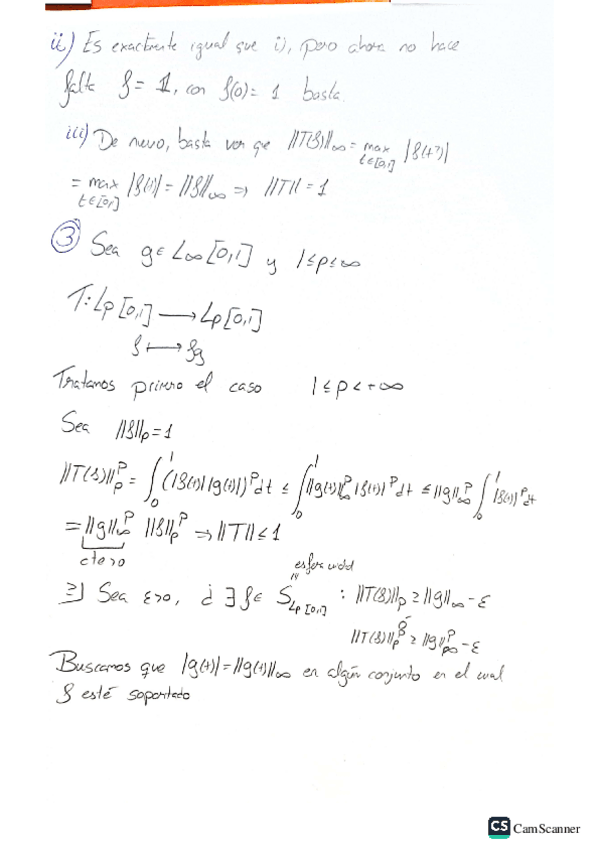 ii) Es exactamente igual que i), pero ahora no hace
falta f = 1, con f(0) = 1 basta.
iii) De nuevo, basta ver que ||T(f)||∞ = max t∈[0,1] |f(t²)|
= max t∈[0,1] |f(t)| = ||f||∞ ⇒ ||T|| = 1
③ Sea g ∈ L∞[0,1] y 1 ≤ p ≤ ∞
T: Lp[0,1] ⟶ Lp[0,1]
f ⟼ fg
Tratamos primero el caso 1 ≤ p < +∞
Sea ||f||p = 1
||T(f)||p^p = ∫₀¹ (|f(t)||g(t)|)^p dt ≤ ∫₀¹ ||g(t)||∞^p |f(t)|^p dt ≤ ||g||∞^p ∫₀¹ |f(t)|^p dt
= ||g||∞^p ||f||p^p ⇒ ||T|| ≤ 1
cte>0
esfera unidad
≥] Sea ε>0, ¿ ∃ f ∈ S_Lp[0,1] : ||T(f)||p ≥ ||g||∞ - ε
||T(f)||p^p ≥ ||g||∞^p - ε
Buscamos que |g(t)| = ||g(t)||∞ en algún conjunto en el cual
f esté soportado
CS CamScanner